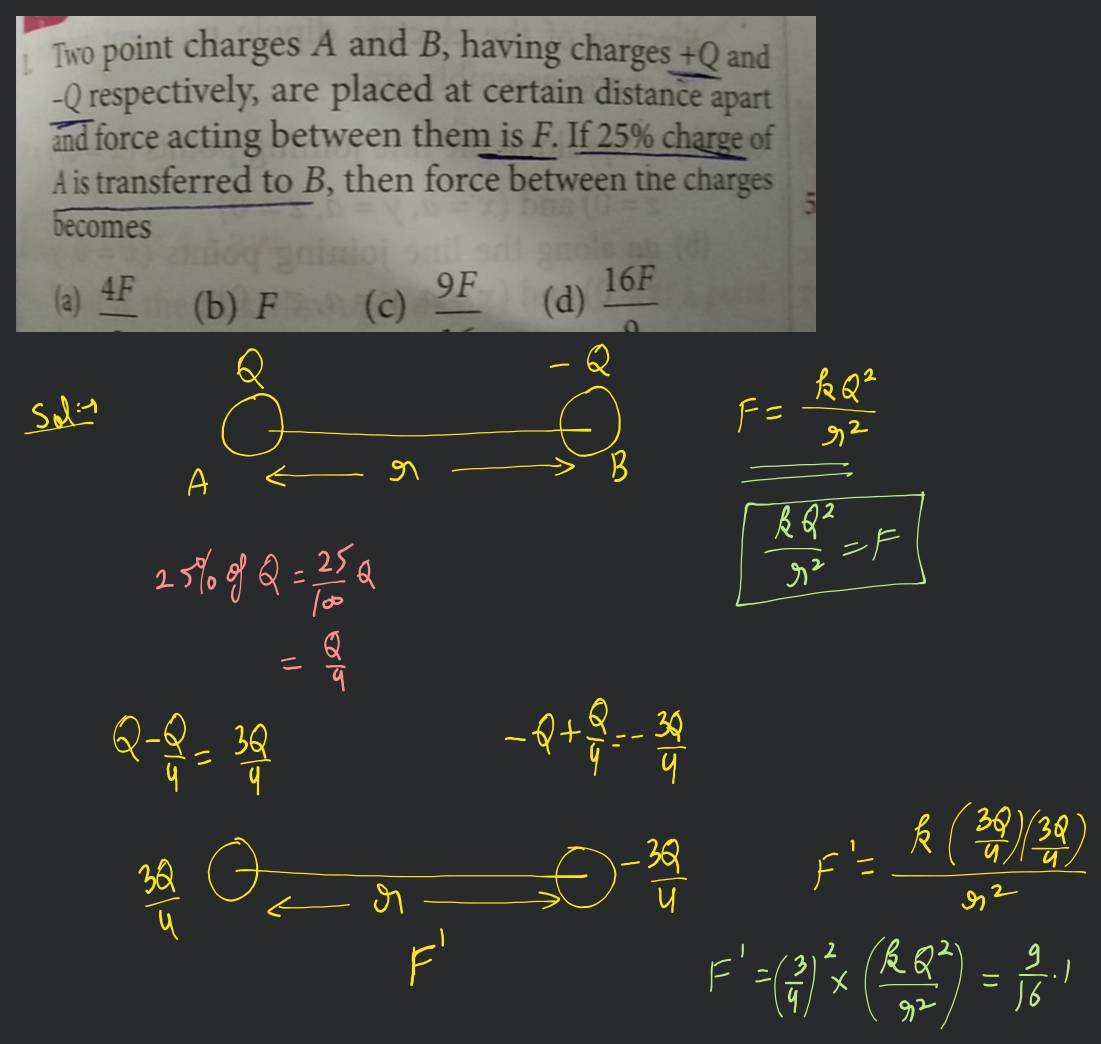 Two point charges A and B, having charges +Q and
-Q respectively, are placed at certain distance apart
and force acting between them is F. If 25% charge of
A is transferred to B, then force between the charges
becomes
5
(a) 4F (b) F (c) 9F (d) 16F
Sol:→
Q - Q
A r B
F = kQ²/r²
kQ²/r² = F
25% of Q = 25/100 Q
= Q/4
Q - Q/4 = 3Q/4
-Q + Q/4 = - 3Q/4
3Q/4 r -3Q/4
F'
F' = k (3Q/4)(3Q/4)/r²
F' = (3/4)² × (kQ²/r²) = 9/16